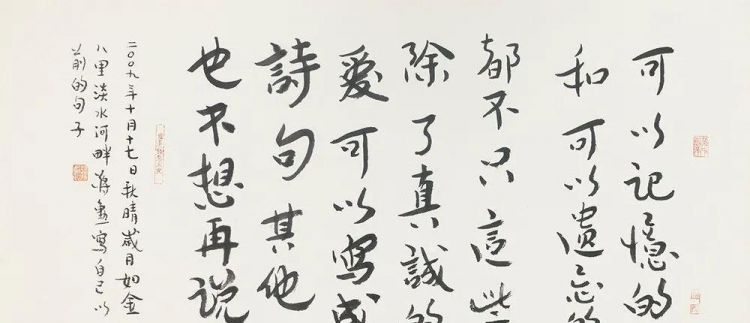 可以记憶的
和可以遗忘的
都不只這些
除了真誠的
愛可以寫成
詩句其他
也不想再说
二〇〇九年十月十七日秋晴歲月如金
八里淡水河畔蒋勳寫自己以
前的句子